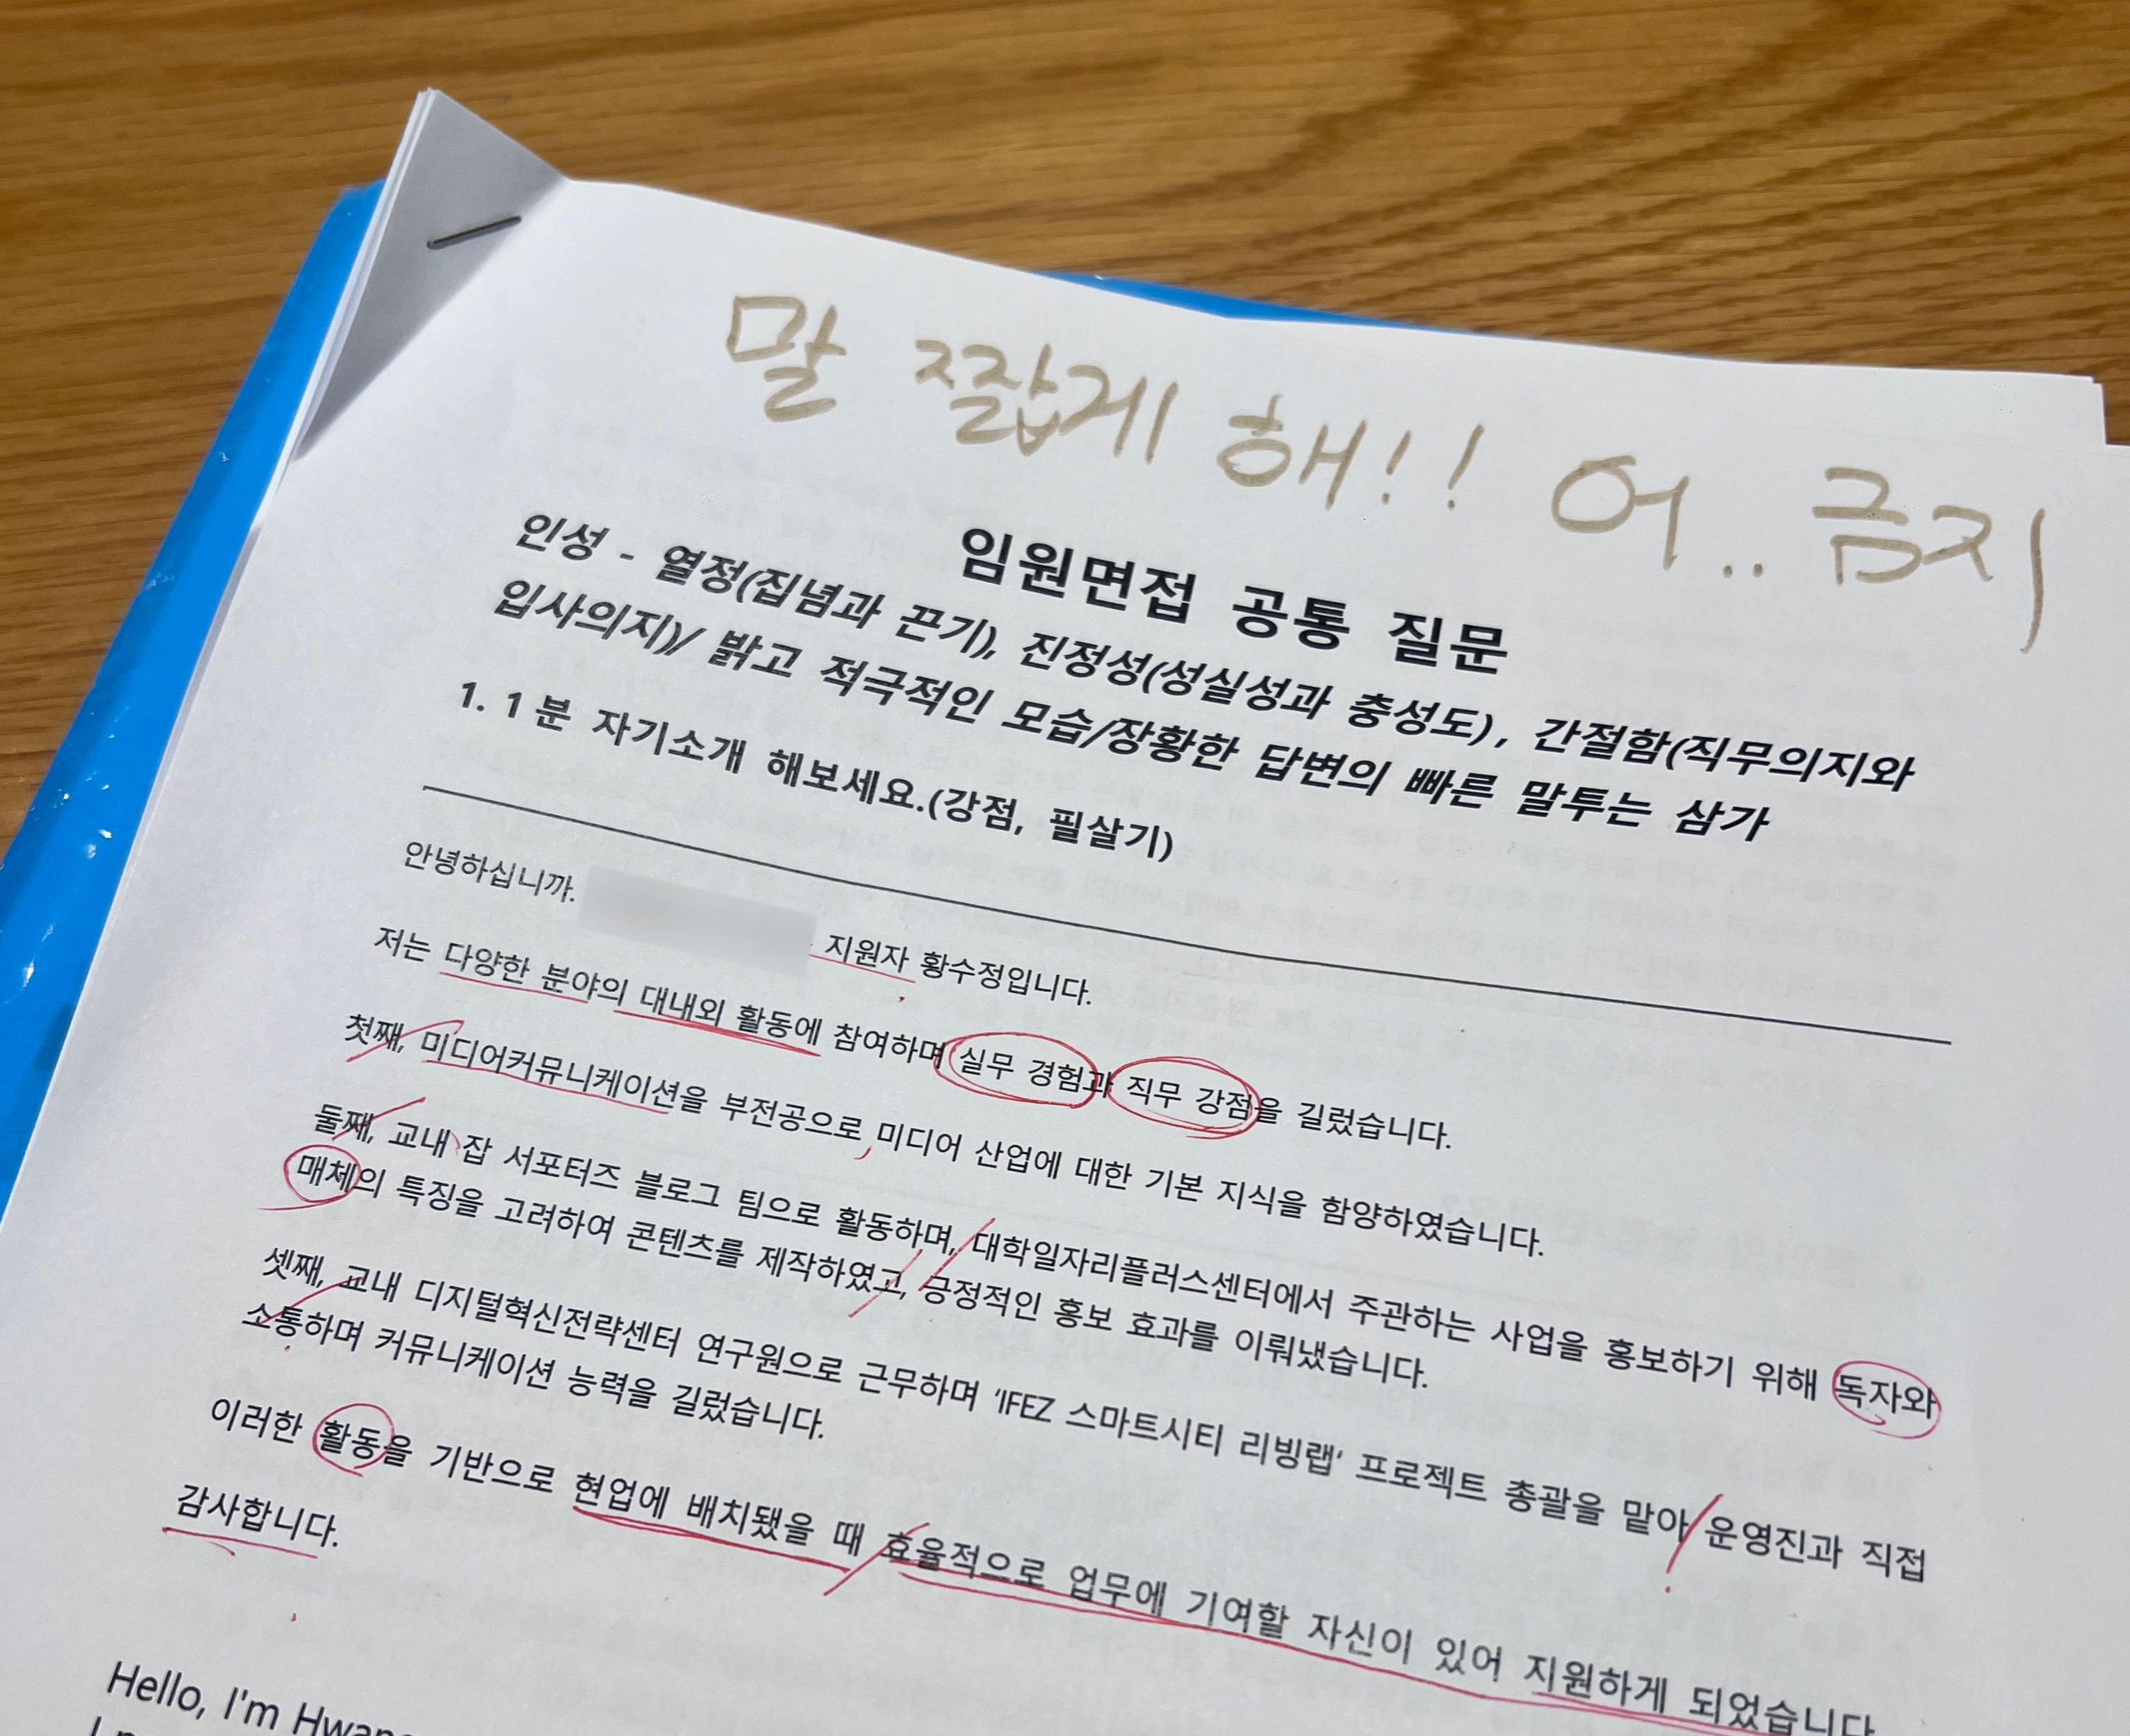 말 짧게 해!! 어.. 금지
임원면접 공통 질문
인성 - 열정(집념과 끈기), 진정성(성실성과 충성도), 간절함(직무의지와
입사의지)/ 밝고 적극적인 모습/장황한 답변의 빠른 말투는 삼가
1. 1분 자기소개 해보세요.(강점, 필살기)
안녕하십니까. 지원자 황수정입니다.
저는 다양한 분야의 대내외 활동에 참여하며 실무 경험과 직무 강점을 길렀습니다.
첫째, 미디어커뮤니케이션을 부전공으로 미디어 산업에 대한 기본 지식을 함양하였습니다.
둘째, 교내 잡 서포터즈 블로그 팀으로 활동하며, 대학일자리플러스센터에서 주관하는 사업을 홍보하기 위해 독자와
매체의 특징을 고려하여 콘텐츠를 제작하였고, 긍정적인 홍보 효과를 이뤄냈습니다.
셋째, 교내 디지털혁신전략센터 연구원으로 근무하며 'IFEZ 스마트시티 리빙랩' 프로젝트 총괄을 맡아 운영진과 직접
소통하며 커뮤니케이션 능력을 길렀습니다.
이러한 활동을 기반으로 현업에 배치됐을 때 효율적으로 업무에 기여할 자신이 있어 지원하게 되었습니다
감사합니다.
Hello, I'm